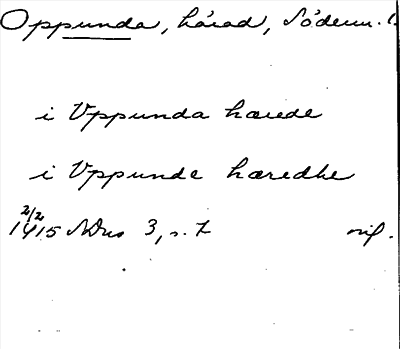 Oppunda, härad, Söderm. l.
i Vppunda hærede
i Vppunde hæredhe
2/2
1415 SDns 3, s. 7 orig.